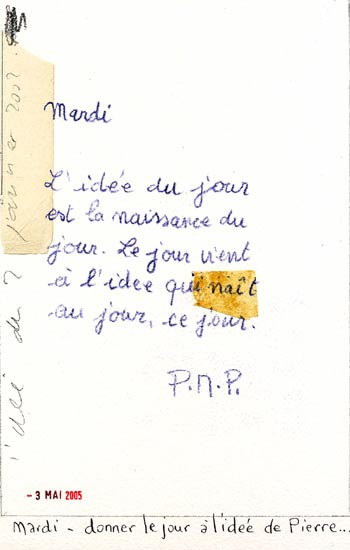 l'idée du 7 janvier 2002.
Mardi
L'idée du jour
est la naissance du
jour. Le jour vient
à l'idee qui naît
au jour, ce jour.
P.M.P.
- 3 MAI 2005
Mardi - donner le jour à l'idée de Pierre...